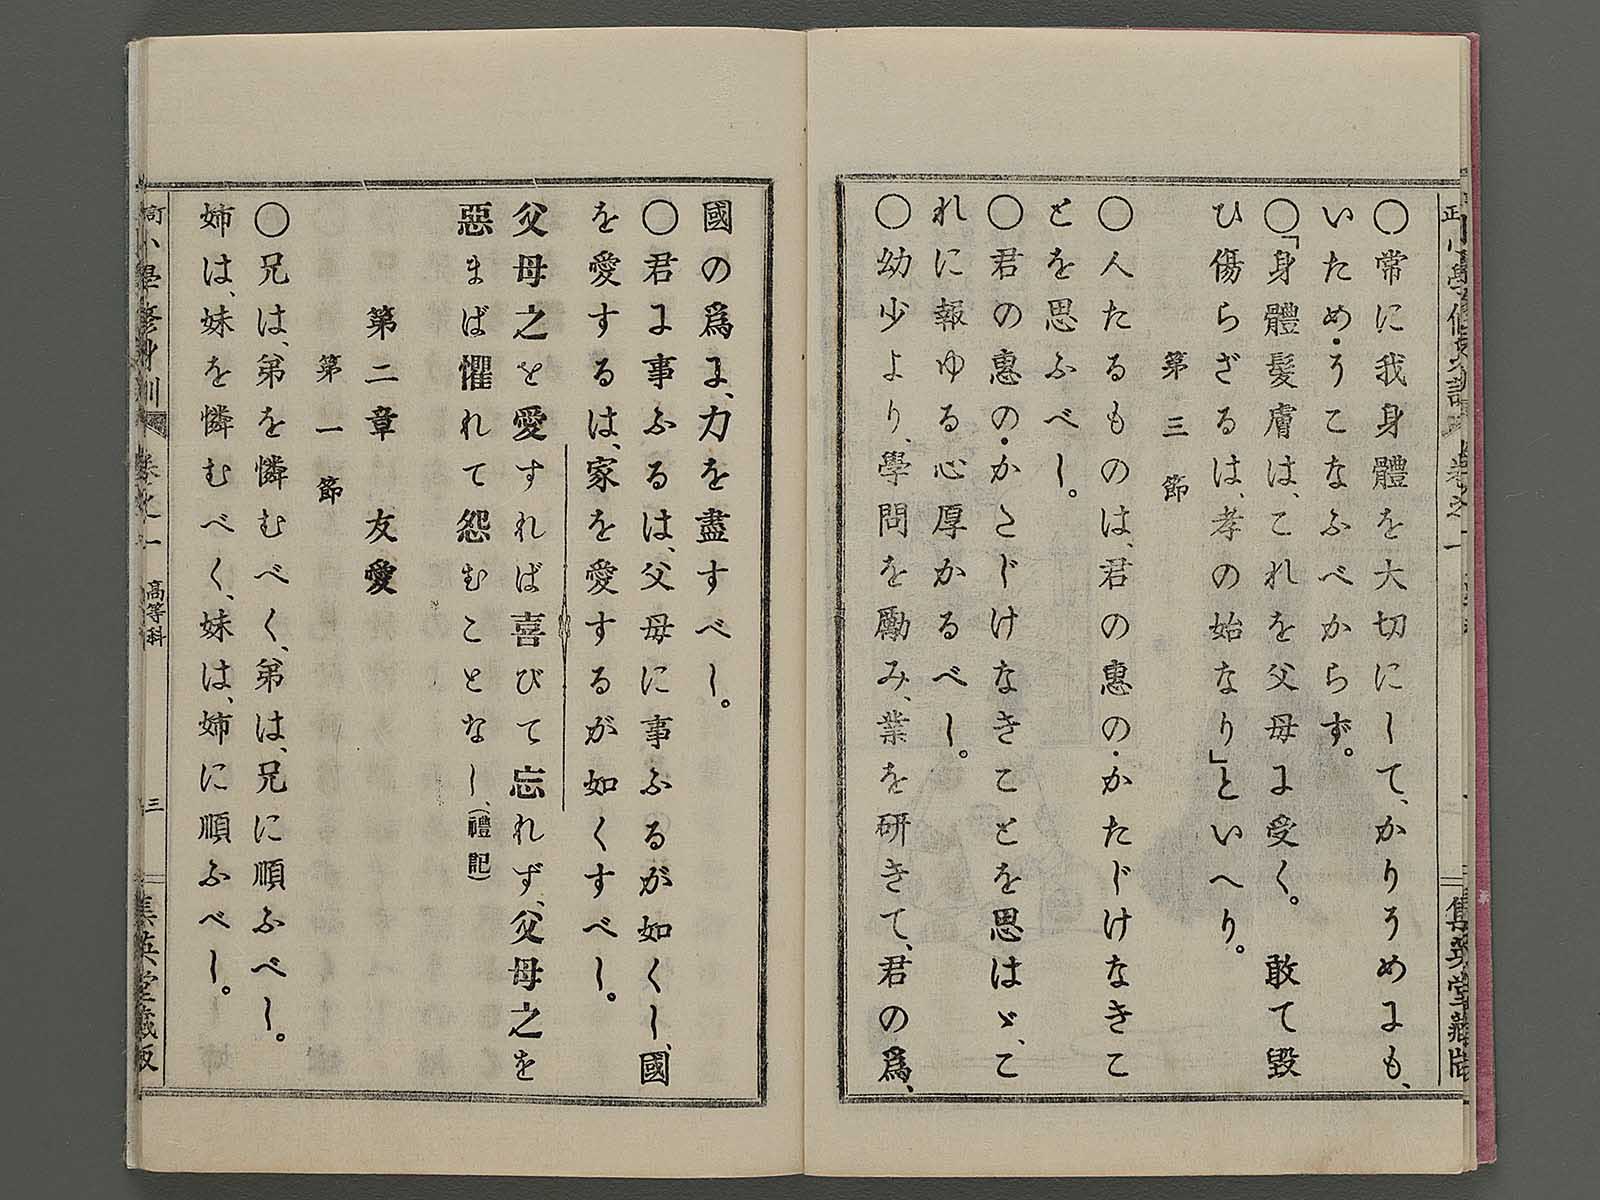 〇常に我身體を大切にして、かりうめにも、
いため・うこなふべからず。
〇「身體髮膚は、これを父母に受く。敢て毀
ひ傷らざるは、孝の始なり」といへり。
第三節
〇人たるものは、君の惠の・かたじけなきこ
とを思ふべし。
〇君の惠の・かたじけなきことを思はゞ、こ
れに報ゆる心厚かるべし。
〇幼少より、學問を勵み、業を研きて、君の爲、
國の爲に、力を盡すべし。
〇君に事ふるは、父母に事ふるが如くし、國
を愛するは、家を愛するが如くすべし。
父母之を愛すれば喜びて忘れず、父母之を
惡まば懼れて怨むことなし、(禮記)
第二章 友愛
第一節
〇兄は、弟を憐むべく、弟は、兄に順ふべし。
姉は、妹を憐むべく、妹は、姉に順ふべし。
小學修身訓 卷之一 高等科 三 集英堂藏版